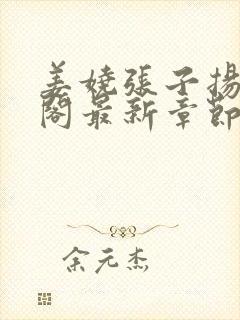 姜嬈張子揚
閣最新章節
余元杰